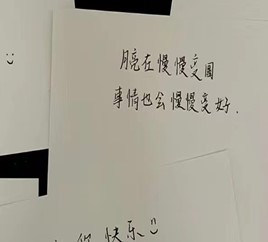 月亮在慢慢变圆
事情也会慢慢变好.
快乐